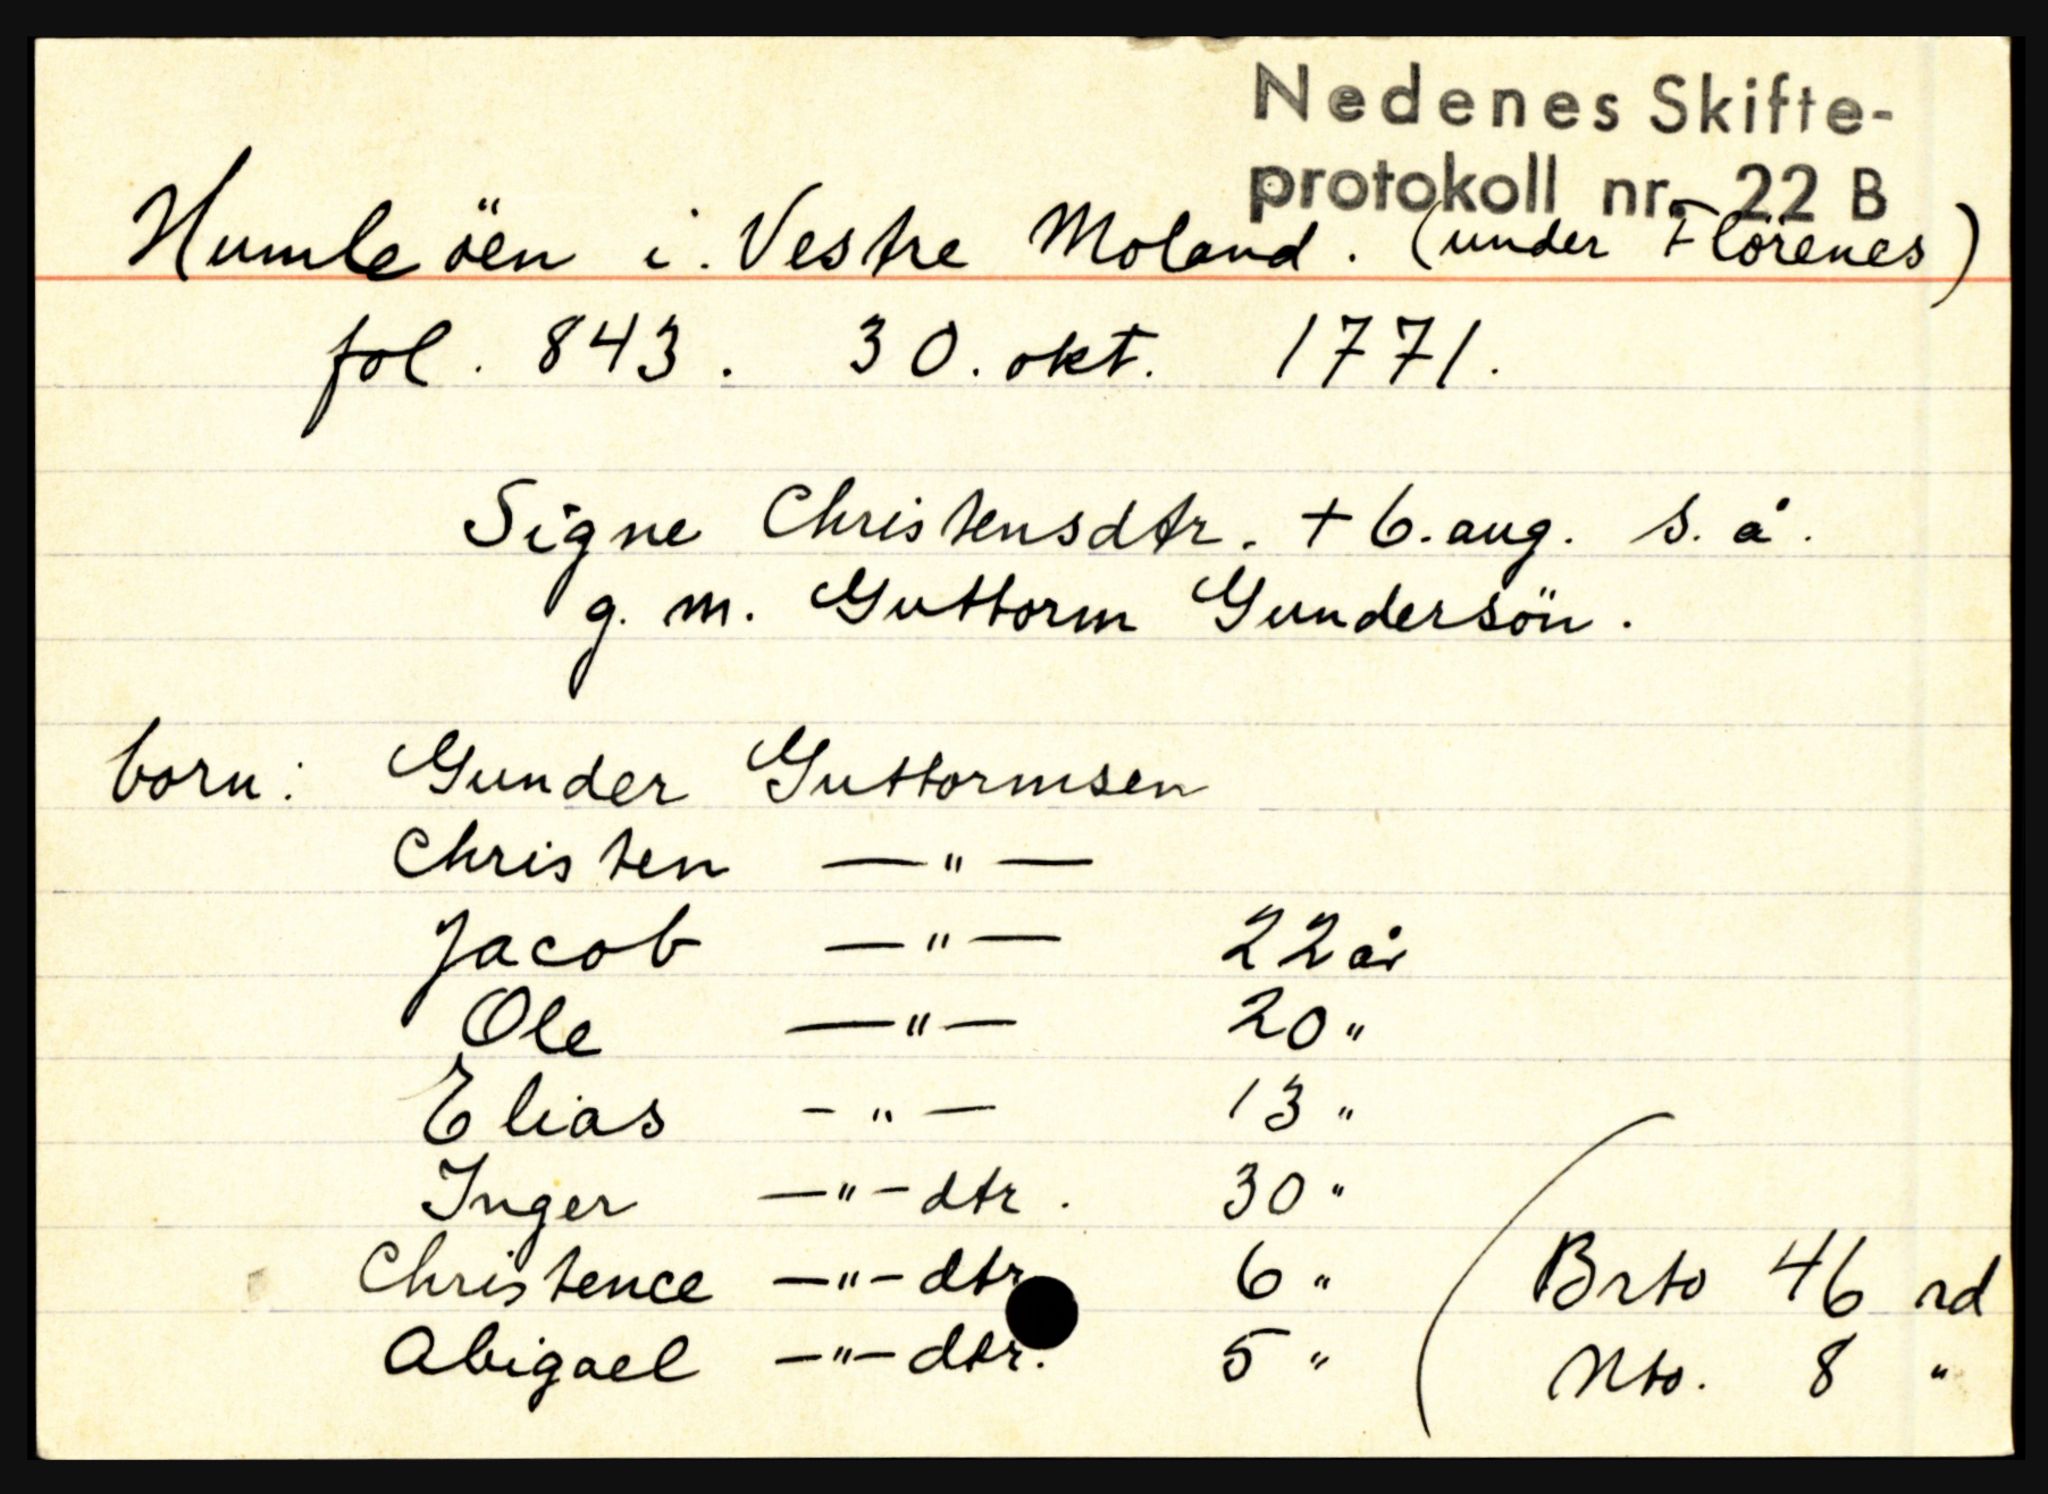 Nedenes Skifte-
protokoll nr. 22 B
Humleöen i. Vestre Moland. (under Flörenes)
fol. 843. 30. okt. 1771.
Signe Christensdtr. + 6. aug. s. å.
g. m. Guttorm Gundersön.
born: Gunder Guttormsen
Christen —"—
Jacob —"— 22 år
Ole —"— 20 "
Elias —"— 13 "
Inger —"— dtr. 30 "
Christence —"— dtr 6 "
Brto 46 rd
Abigael —"— dtr. 5 "
Nto. 8 "